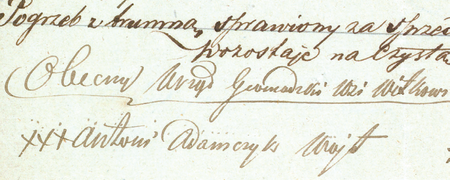 Pogrzeb z trumną, sprawiony za sprze
pozostaje na Czysta
(Obecny Urząd Gromadzki Wsi Witkow
XXX Antoni Adamczyk Wójt